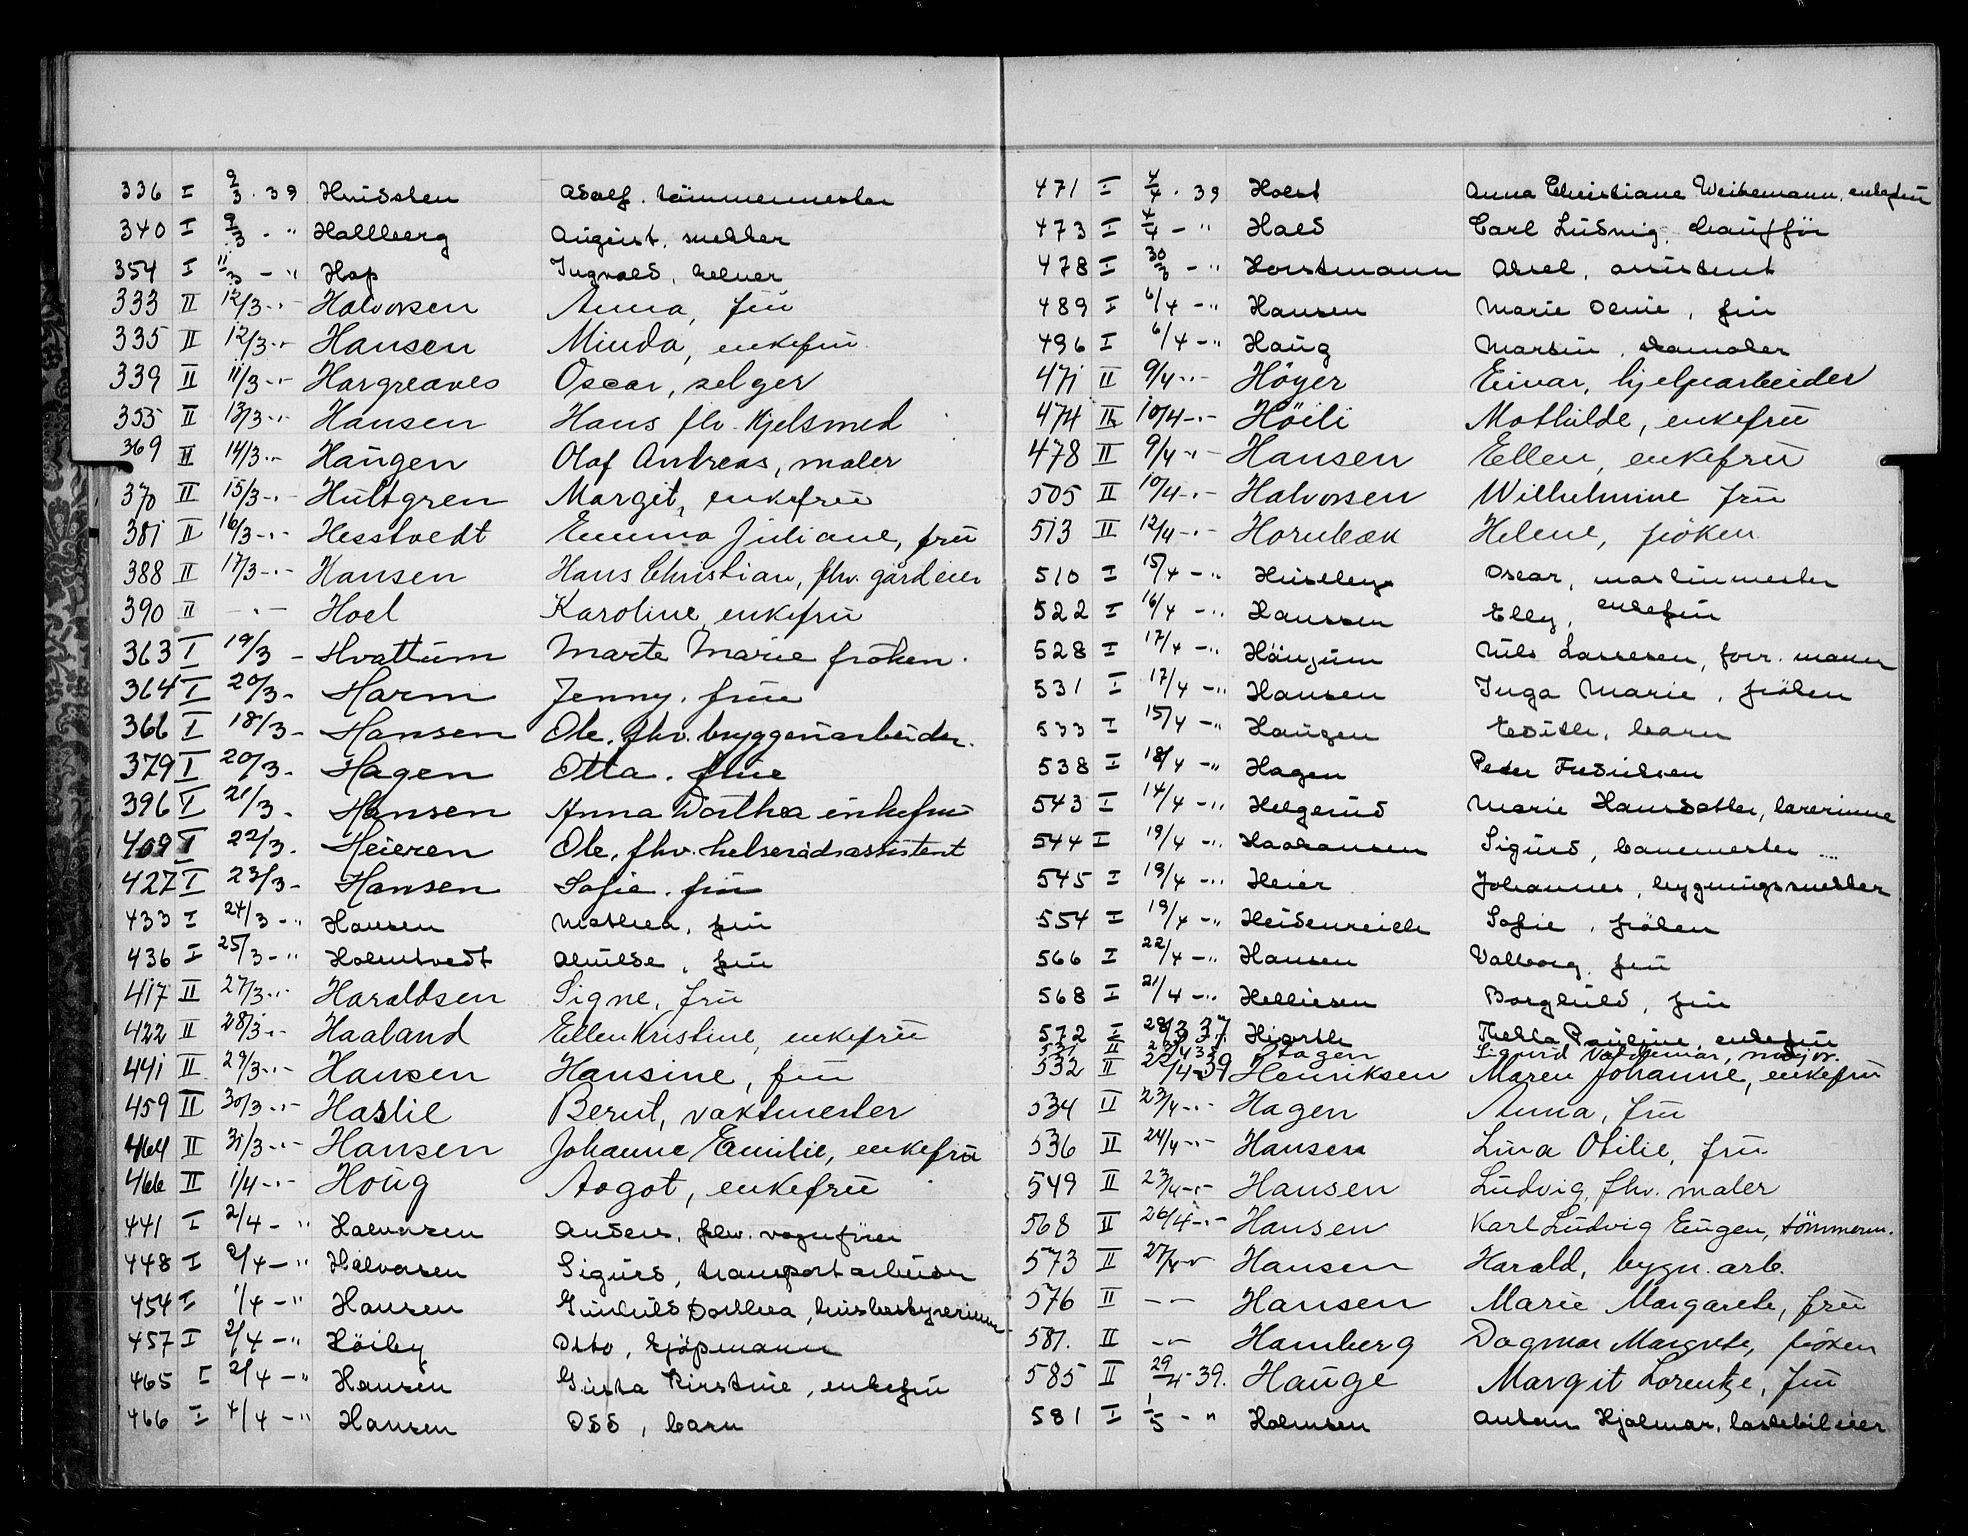 336 I 9/3 . 39 Hvidsten Adolf. tömmermester
340 I 9/3 - " Hallberg August, snekker
354 I 11/3 - " Hop Ingvald, kelner
333 II 12/3 -"- Halvorsen Anna, fru
335 II 12/3 -"- Hansen Minda, enkefru
339 II 11/3 -"- Hargreaves Oscar, selger
353 II 13/3 -"- Hansen Hans fhv. Kjelsmed
369 II 14/3 -"- Haugen Olaf Andreas, maler
370 II 15/3 -"- Hultgren Margit, enkefru
381 II 16/3 -"- Hesstvedt Emma Juliane, fru
388 II 17/3 -"- Hansen Hans Christian, fhv. gårdeier
390 II -"- Hoel Karoline, enkefru
363 I 19/3 - Hvattum Marte Marie fröken.
364 I 20/3 - Harm Jenny. frue
366 I 18/3 - Hansen Ole. fhv. bryggeriarbeider.
379 I 20/3 - Hagen Otta. frue
396 I 21/3 . Hansen Anna Dorthea enkefrue
409 I 22/3 . Heieren Ole, fhv. helserådsassistent
427 I 23/3 - Hansen Sofie. fru
433 I 24/3 - " Hansen Mathea, fru
436 I 25/3 - " Holmtvedt Alvilde, fru
417 II 27/3 -"- Haraldsen Signe, fru
422 II 28/3 -"- Haaland Ellen Kristine, enkefru
441 II 29/3 -"- Hansen Hansine, fru
459 II 30/3 -"- Haslie Bernt, vaktmester
464 II 31/3 -"- Hansen Johanne Emilie, enkefru
466 II 1/4 -"- Houg Aagot, enkefru
441 I 2/4 - " Halvorsen Anders, fhv. vognfører
448 I 2/4 - " Halvorsen Sigurd, transportarbeider
454 I 1/4 - " Hansen Gunhild Dorthea, husbestyrerinne
457 I 2/4 - " Höiby Otto, kjöpmann
465 I 2/4 - " Hansen Gusta Kirstine, enkefru
466 I 4/4 - " Hansen Odd, barn
471 I 4/4 . 39 Holst Anna Christiane Weidemann, enkefru
473 I 4/4 - " Hald Carl Ludvig, chaufför
478 I 30/3 - " Horstmann Aksel, assistent
489 I 6/4 - " Hansen Marie Oenie, fru
496 I 6/4 - " Haug Martin, skomaker
471 II 9/4 -"- Höyer Einar, hjelpearbeider
474 II 10/4 -"- Höili Mathilde, enkefru
478 II 9/4 -"- Hansen Ellen, enkefru
505 II 10/4 -"- Halvorsen Wilhelmine fru
513 II 12/4 -"- Hornbæk Helene, fröken
510 I 15/4 - " Huseby Oscar, maskinmester
522 I 16/4 - " Hanssen Elly, enkefru
528 I 17/4 - " Haugum Nils Lassesen, forr. mann
531 I 17/4 - " Hansen Inga Marie, fröken
533 I 15/4 - " Haugen Edith, barn
538 I 18/4 - " Hagen Peder Fredriksen
543 I 14/4 - " Helgerud Marie Hansdatter, lærerinne
544 I 19/4 - " Haakansen Sigurd, banemester
545 I 19/4 - " Heier Johannes, bygningssnekker
554 I 19/4 - " Heidenreich Sofie, fröken
566 I 22/4 - " Hansen Valborg, fru
568 I 21/4 - " Helliesen Borghild, fru
572 I 28/3 37 Hiorth Thekla Pauline, enkefru
531 II Hagen Sigurd Valdemar, major.
532 II 22/4 -39 Henriksen Maren Johanne, enkefru
534 II 23/4 -"- Hagen Anna, fru
536 II 24/4 -"- Hansen Lina Otilie, fru
549 II 23/4 -"- Hansen Ludvig, fhv. maler
568 II 26/4 -"- Hansen Karl Ludvig Eugen, tömmerm.
573 II 27/4 Hansen Harald, bygn. arb.
576 II -"- Hansen Marie Margarete, fru
581. II -"- Hamberg Dagmar Margrete, fröken
585 II 29/4 - 39. Hauge Margit Lorentze, fru
581 I 1/5 - " Holmsen Anton Hjalmar, lastebileier